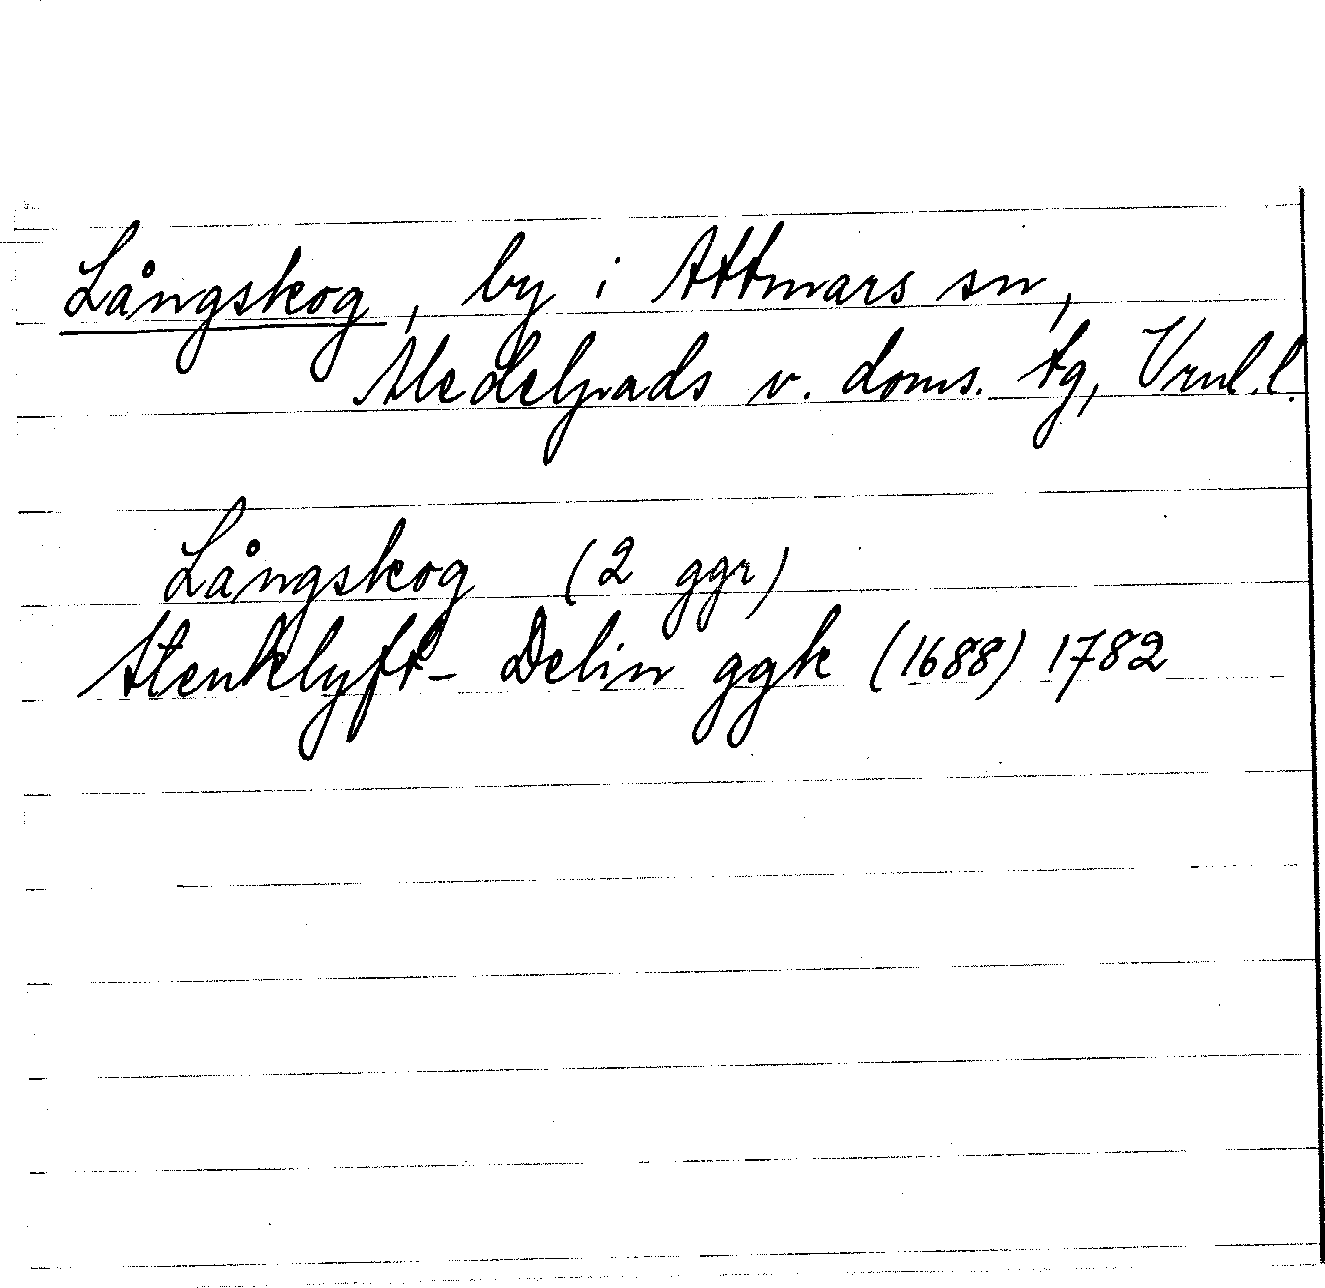 Långskog, by i Attmars sn,
Medelpads v. doms. tg, Vrnl.l.
Långskog (2 ggr)
Stenklyft- Delin ggk (1688) 1782